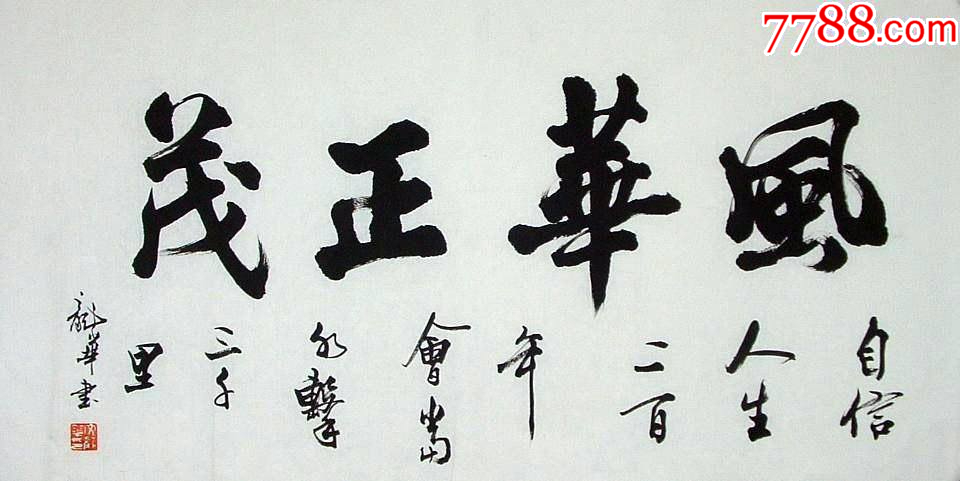 7788.com
風華正茂
自信
人生
二百
年
會當
水擊
三千
里
龍華書